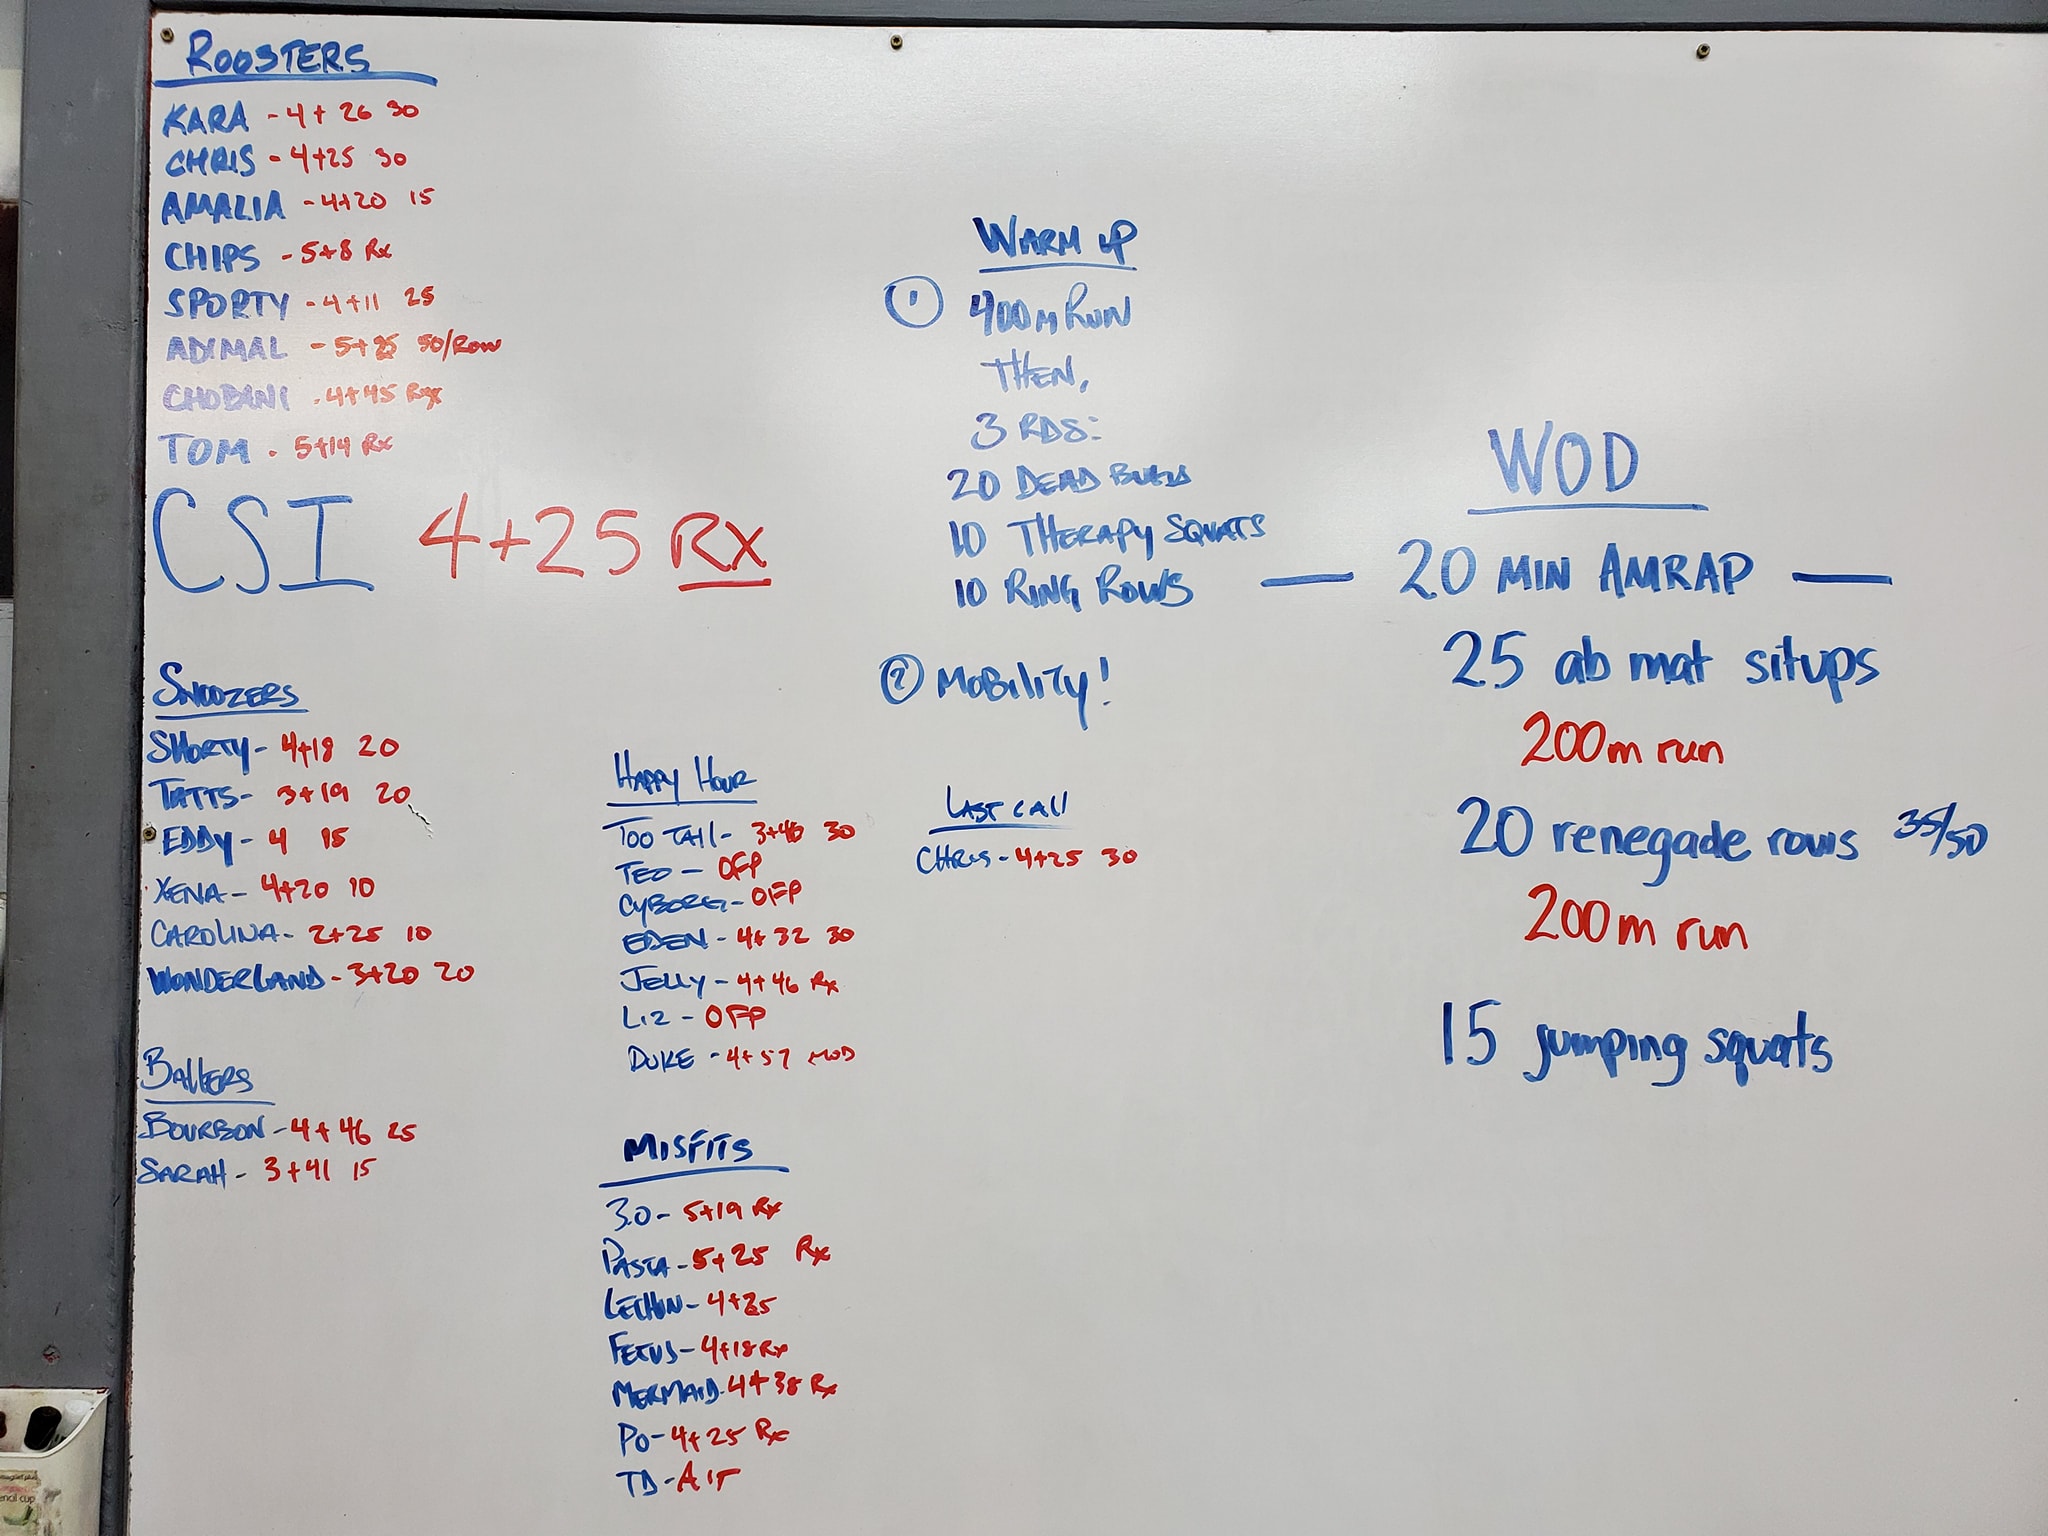 ROOSTERS
KARA - 4+ 26 30
CHRIS - 4+25 30
AMALIA - 4+20 15
CHIPS - 5+8 Rx
SPORTY - 4+11 25
ADIMAL - 5+25 50/ROW
CHOBANI - 4+45 Rx
TOM - 5+14 Rx
CSI 4+25 Rx
SNOOZERS
SHORTY - 4+18 20
TATTS - 3+19 20
EDDY - 4 15
XENA - 4+20 10
CAROLINA - 2+25 10
WONDERLAND - 3+20 20
BALLERS
BOURBON - 4+46 25
SARAH - 3+41 15
HAPPY HOUR
TOO TALL - 3+46 30
TED - OFP
CYBORG - OFP
EDEN - 4+32 30
JELLY - 4+46 Rx
LIZ - OFP
DUKE - 4+57 MOD
MISFITS
3.0 - 5+19 Rx
PASTA - 5+25 Rx
LECHON - 4+25
FETUS - 4+18 Rx
MERMAID - 4+38 Rx
PO - 4+25 Rx
TD -
LAST CALL
CHRIS - 4+25 30
WARM UP
① 400m RUN
THEN,
3 RDS:
20 DEAD BUGS
10 THERAPY SQUATS
10 RING ROWS
② MOBILITY!
WOD
— 20 MIN AMRAP —
25 ab mat situps
200m run
20 renegade rows 35/50
200m run
15 jumping squats